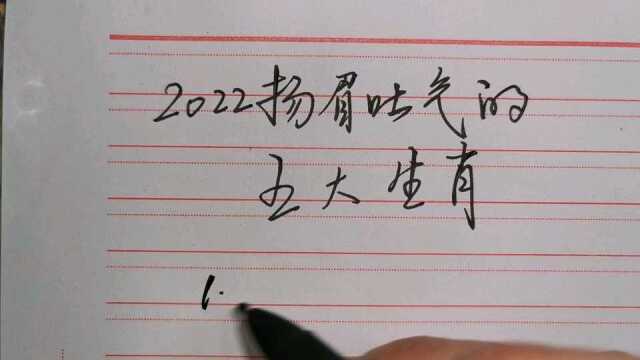 2022扬眉吐气的
五大生肖
1.